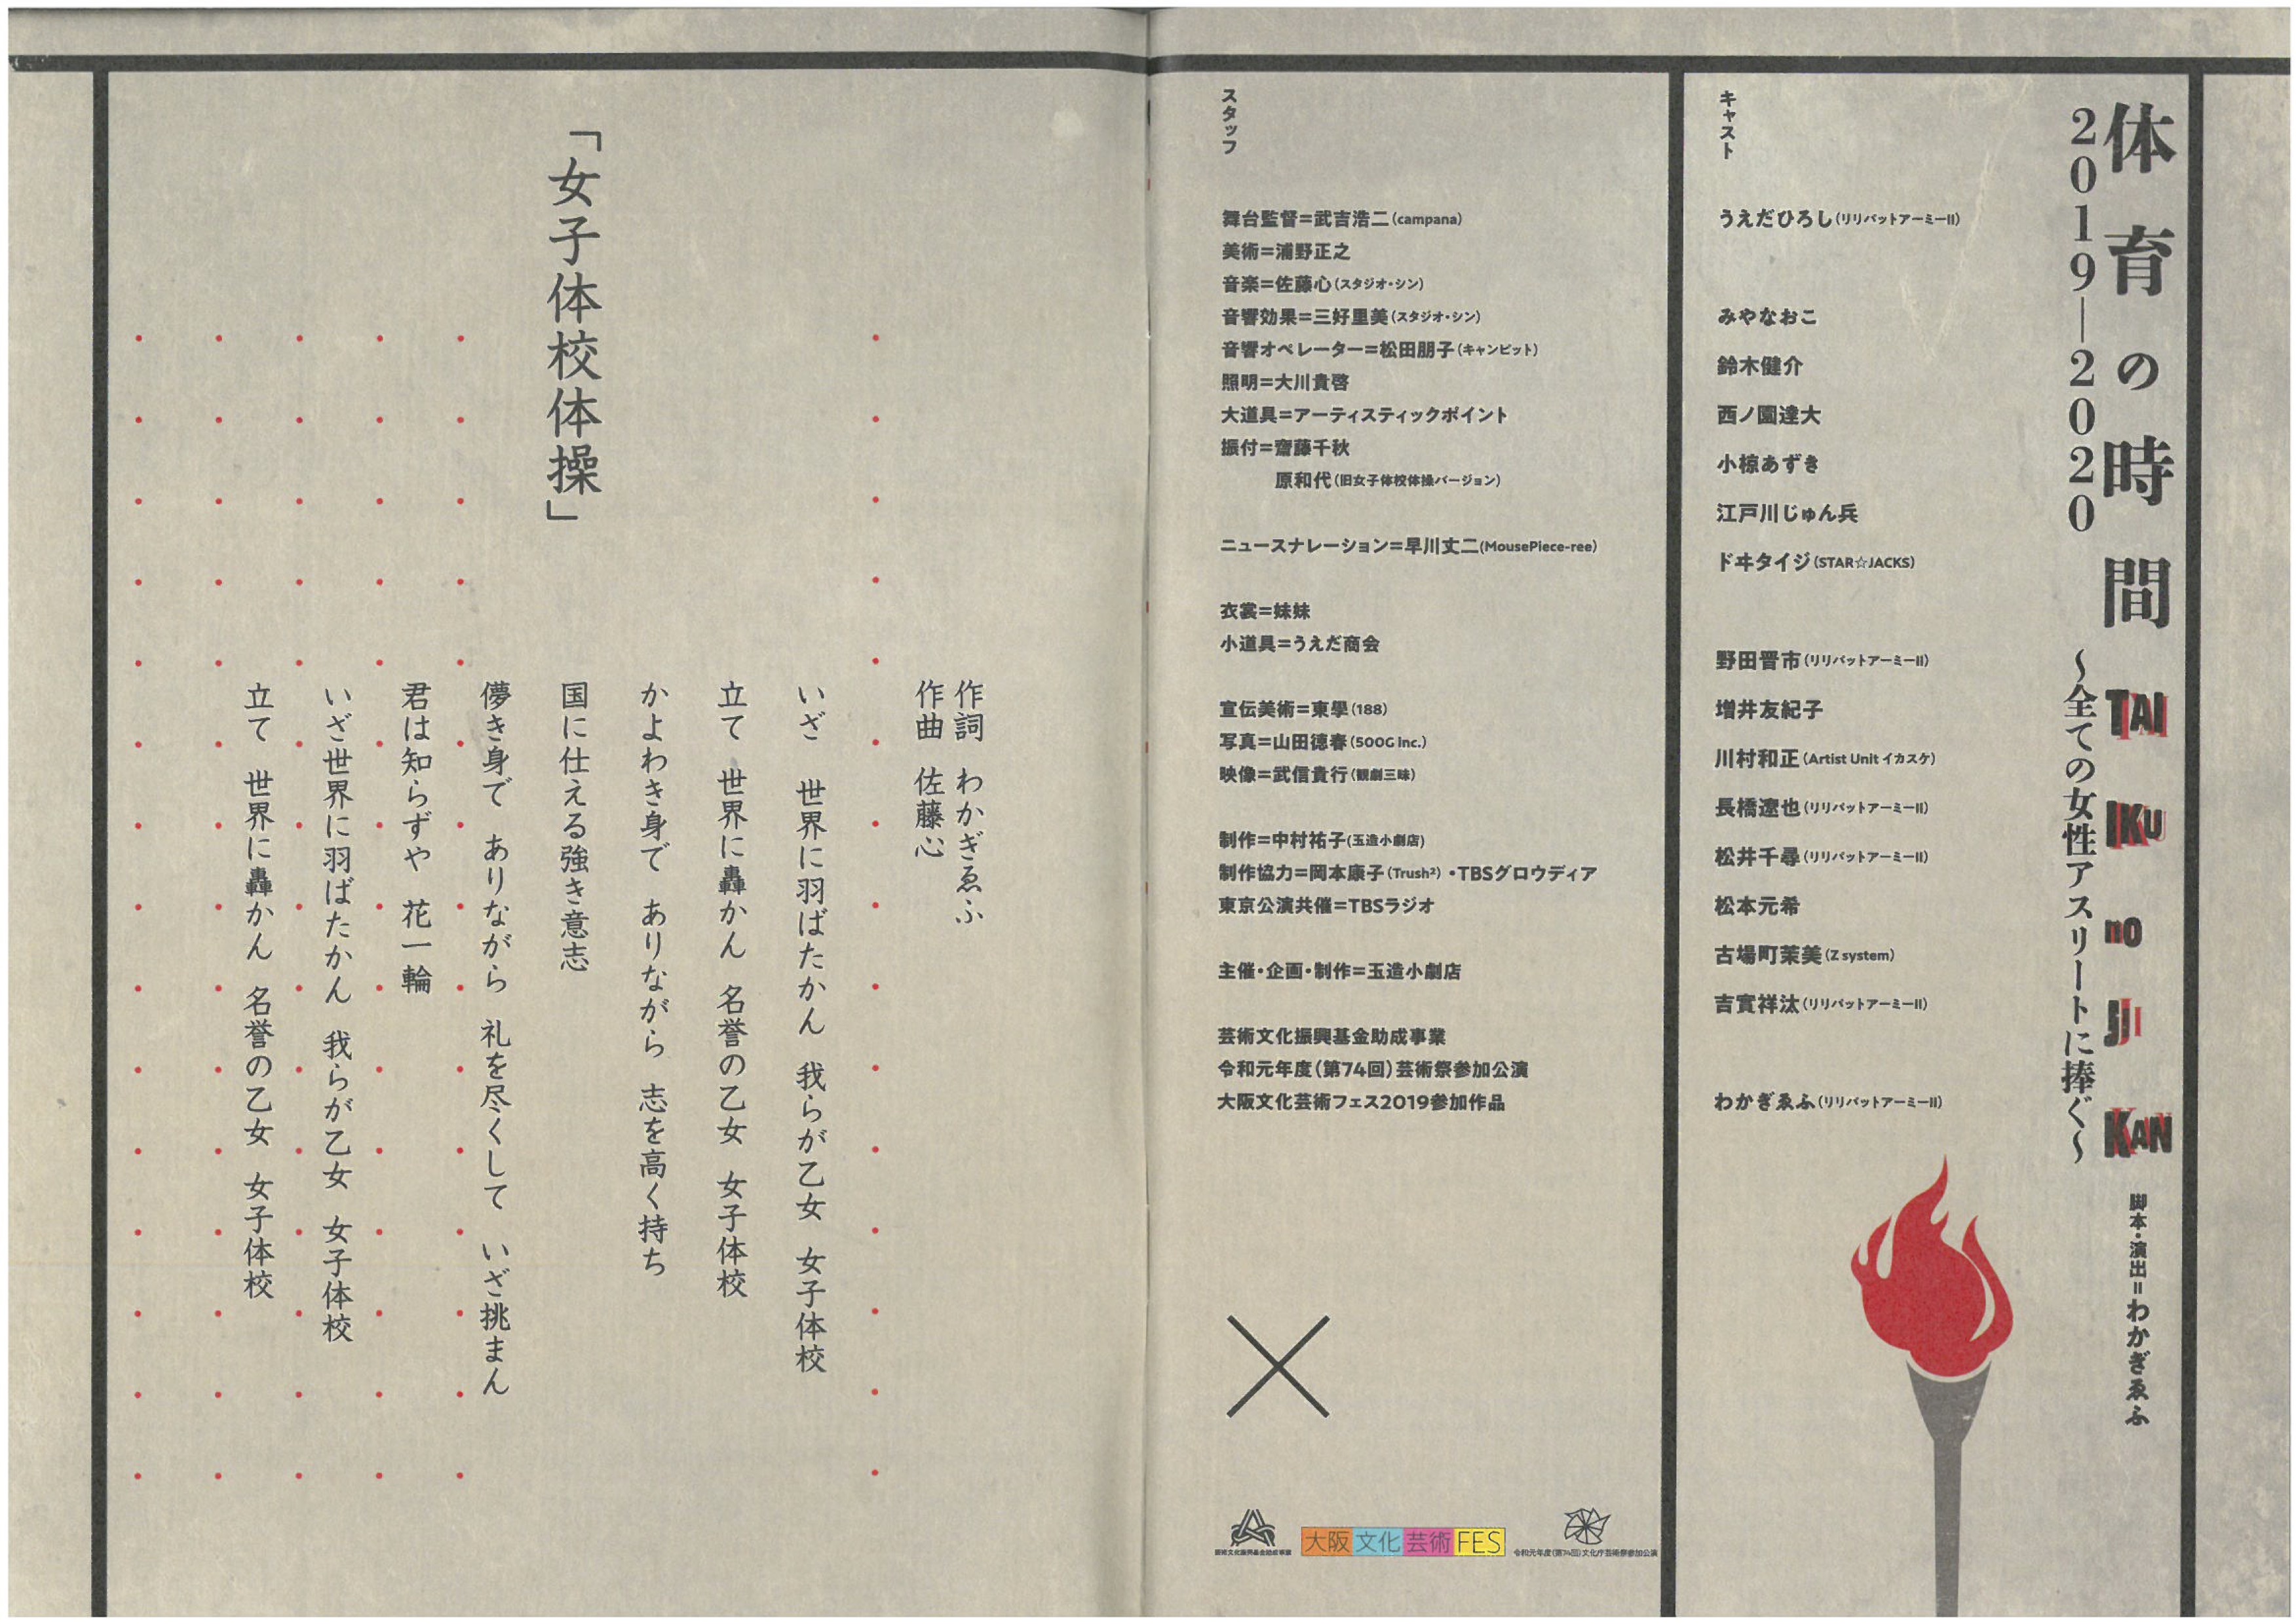 体育の時間 TAI IKU no JI KAN
2019―2020 〜全ての女性アスリートに捧ぐ〜
脚本・演出=わかぎゑふ
キャスト
うえだひろし(リリパットアーミーII)
みやなおこ
鈴木健介
西ノ園達大
小椋あずき
江戸川じゅん兵
ドヰタイジ(STAR☆JACKS)
野田晋市(リリパットアーミーII)
増井友紀子
川村和正(Artist Unit イカスケ)
長橋遼也(リリパットアーミーII)
松井千尋(リリパットアーミーII)
松本元希
古場町茉美(Z system)
吉實祥汰(リリパットアーミーII)
わかぎゑふ(リリパットアーミーII)
スタッフ
舞台監督=武吉浩二(campana)
美術=浦野正之
音楽=佐藤心(スタジオ・シン)
音響効果=三好里美(スタジオ・シン)
音響オペレーター=松田朋子(キャンビット)
照明=大川貴啓
大道具=アーティスティックポイント
振付=齋藤千秋
原和代(旧女子体校体操バージョン)
ニュースナレーション=早川丈二(MousePiece-ree)
衣裳=妹妹
小道具=うえだ商会
宣伝美術=東學(188)
写真=山田徳春(500G Inc.)
映像=武信貴行(観劇三昧)
制作=中村祐子(玉造小劇店)
制作協力=岡本康子(Trush²)・TBSグロウディア
東京公演共催=TBSラジオ
主催・企画・制作=玉造小劇店
芸術文化振興基金助成事業
令和元年度(第74回)芸術祭参加公演
大阪文化芸術フェス2019参加作品
芸術文化振興基金助成事業
大阪文化芸術FES
令和元年度(第74回)文化庁芸術祭参加公演
「女子体校体操」
作詞 わかぎゑふ
作曲 佐藤心
いざ 世界に羽ばたかん 我らが乙女 女子体校
立て 世界に轟かん 名誉の乙女 女子体校
かよわき身で ありながら 志を高く持ち
国に仕える強き意志
儚き身で ありながら 礼を尽くして いざ挑まん
君は知らずや 花一輪
いざ世界に羽ばたかん 我らが乙女 女子体校
立て 世界に轟かん 名誉の乙女 女子体校